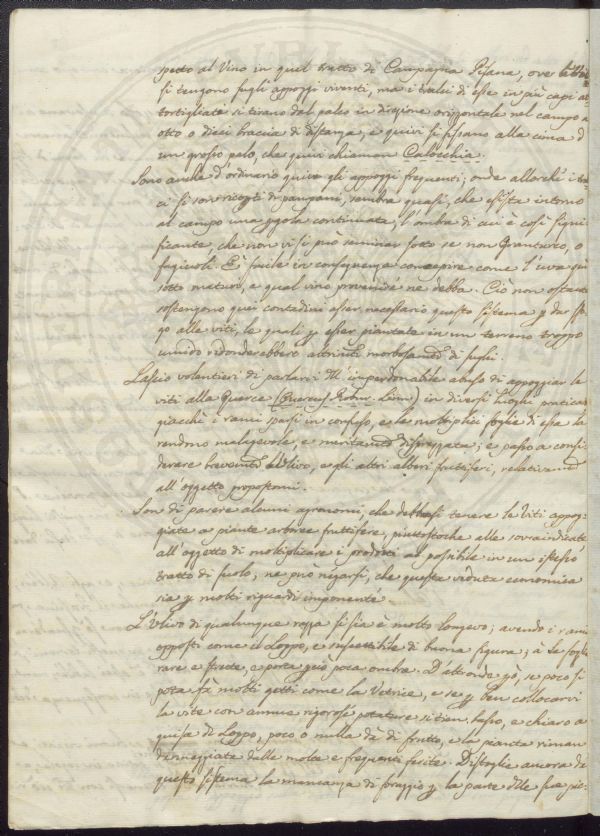 spetto al Vino in quel tratto di Campagna Pisana, ove le Viti
si tengono sugli appoggi viventi, ma i tralci di esse in più capi at
tortigliate si tirano dal palco in direzione orizzontale nel campo a
otto o dieci braccia di distanza, e quivi si fissano alla cima d
un grosso palo, che quivi chiaman Calocchia.
Sono anche d'ordinario quivi gli appoggi frequenti; onde allorchè i tral
ci si son ricoperti di pampani, sembra quasi, che esista intorno
al campo una pergola continuata, l'ombra di cui è così signi
ficante, che non vi si può seminar sotto se non Granturco, o
fagiuoli. È facile in conseguenza concepire come l'uva quì
sotto maturi, e qual vino provenir ne debba. Ciò non ostante
sostengono quei contadini esser necessario questo sistema p dar sfo
go alle viti, le quali p esser piantate in un terreno troppo
umido ridonderebbero altrimti morbosamte di sughi.
Lascio volentieri di parlarvi dell'imperdonabile abuso di appoggiar le
viti alle Querce (Quercus Robur. Linn:) in diversi luoghi praticato
giacchè i rami sparsi in confuso, e le moltiplici foglie di essa la
rendono malagevole, e meritamte disprezzata; e passo a consi
derare brevemte l'Ulivo, e gli altri alberi fruttiferi, relativamte
all'oggetto propostomi.
Son di parere alcuni agronomi, che debbasi tenere le Viti appog
giate a piante arboree fruttifere, piuttostochè alle sovraindicate,
all'oggetto di moltiplicare i prodotti al possibile in un istesso
tratto di suolo, ne può negarsi, che questa veduta economica
sia p molti riguardi imponente.
L'Ulivo di qualunque razza si sia è molto longevo; avendo i rami
opposti come il Loppo, e suscettibile di buona figura; à le foglie
rare e strette, e porta perciò poca ombra. D'altronde però, se poco si
pota fà molti getti come la Vetrice, e se p ben collocarvi
la vite con annue rigorose potature si tien basso, e chiaro a
guisa di Loppo, poco o nulla dà di frutto, e la pianta riman
danneggiata dalle molte e frequenti ferite. Distoglie ancora da
questo sistema la mancanza di foraggio p la parte delle sue pic: